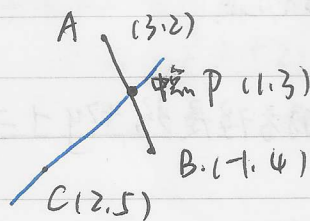 A (3.2)
中点 P (1.3)
B.(-1.4)
C(2.5)